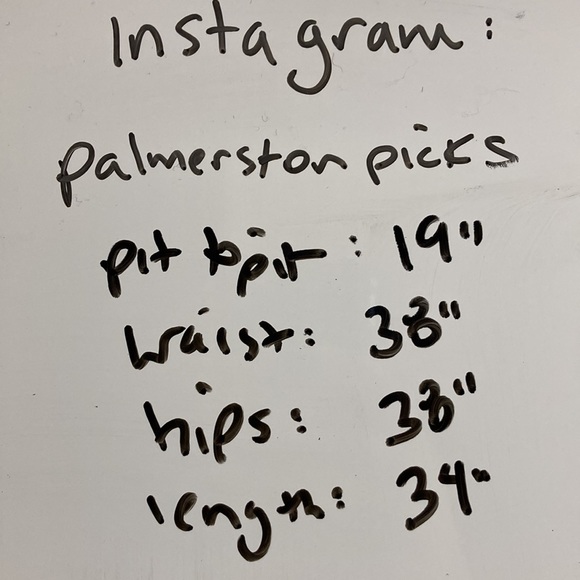 Instagram:
palmerston picks
pit to pit: 19"
waist: 38"
hips: 38"
length: 34"